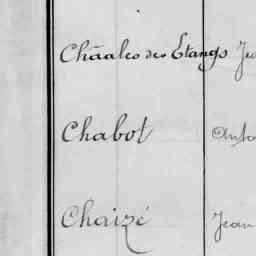 Chaales des Etangs Jea
Chabot Anto
Chaizé Jean